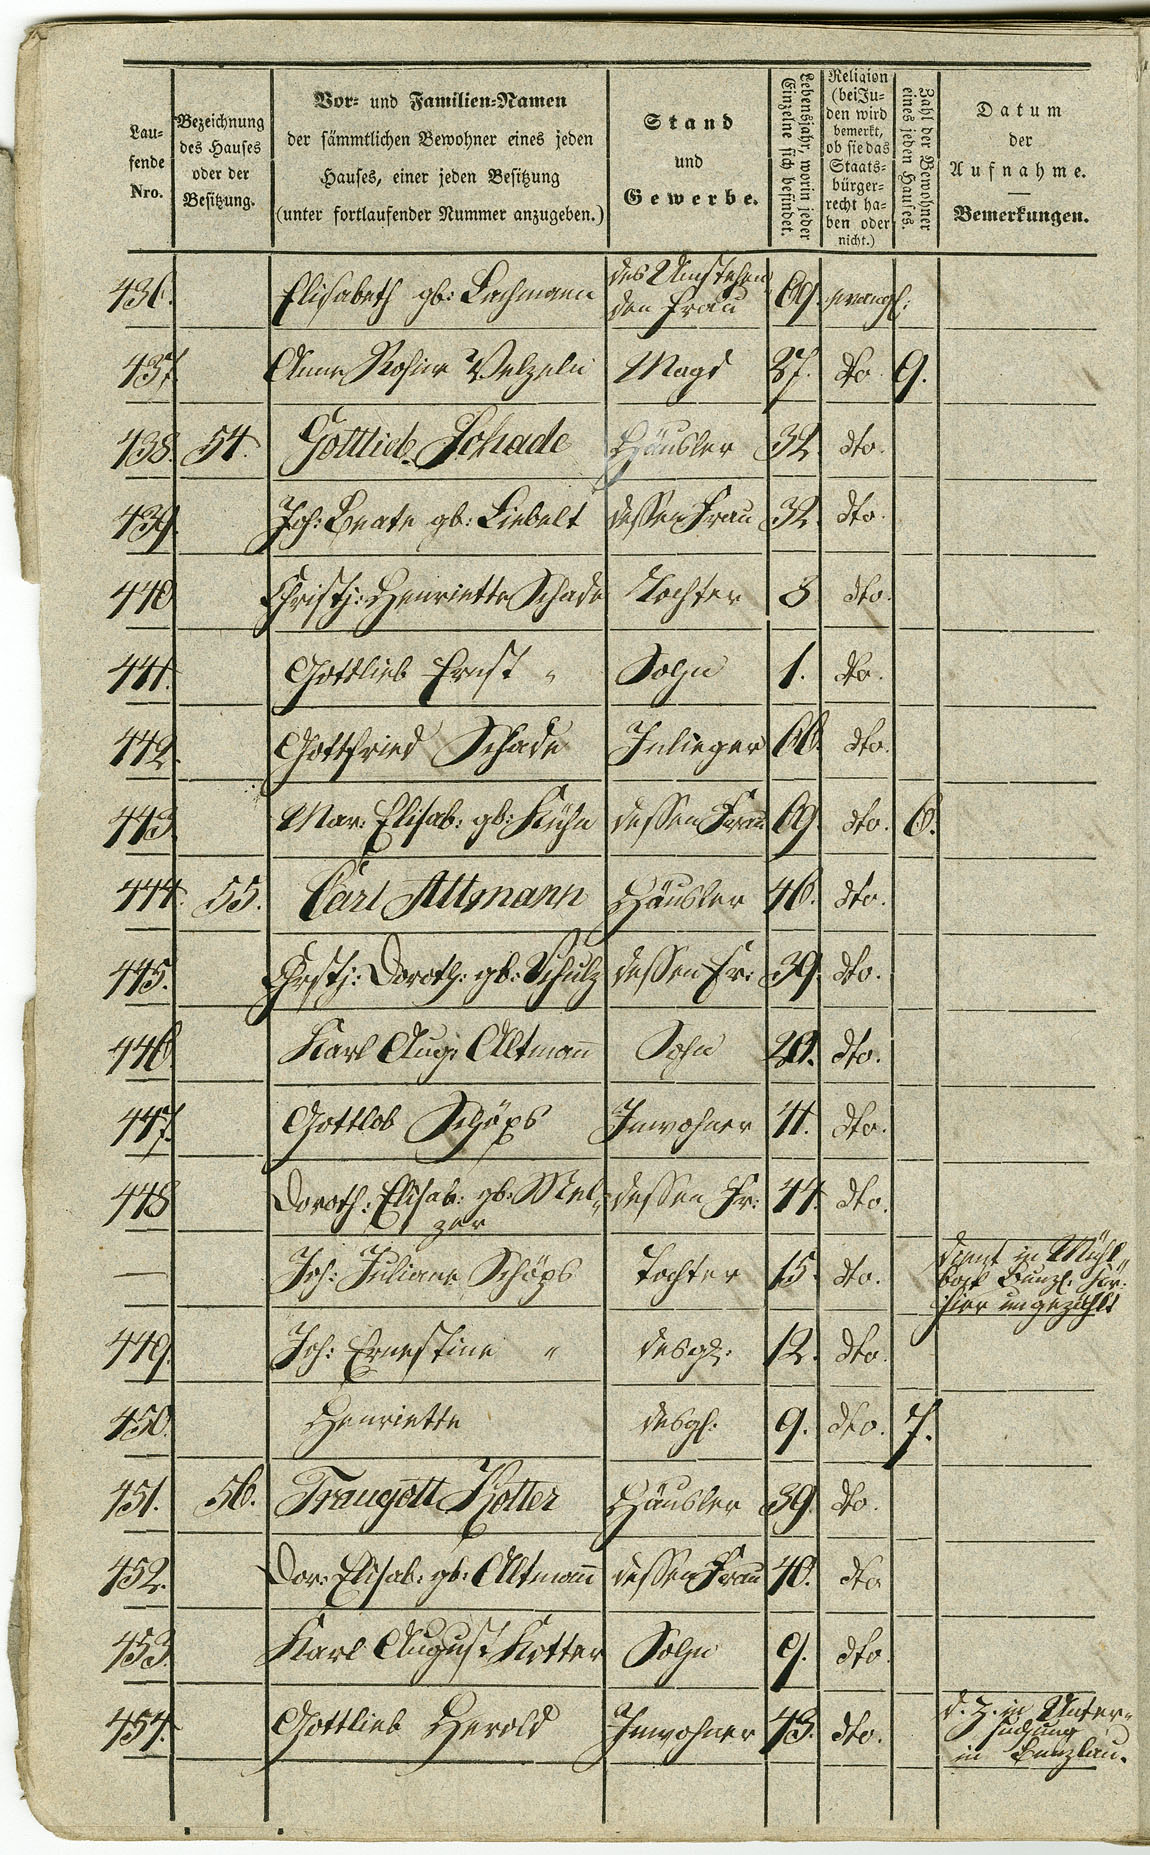 Lau-
fende
Nro.
Bezeichnung
des Hauses
oder der
Besitzung.
Vor- und Familien-Namen
der sämmtlichen Bewohner eines jeden
Hauses, einer jeden Besitzung
(unter fortlaufender Nummer anzugeben.)
Stand
und
Gewerbe.
Lebensjahr, worin jeder
Einzelne sich befindet.
Religion
(bei Ju-
den wird
bemerkt,
ob sie das
Staats-
bürger-
recht ha-
ben oder
nicht.)
Zahl der Bewohner
eines jeden Hauses.
Datum
der
Aufnahme.
Bemerkungen.
436. Elisabeth gb: Lachmann des Umstehen
den Frau 69. evangl:
437. Anne Rosine Melzeln Magd 37. dto 9.
438. 54. Gottlieb Schade Häusler 32 dto.
439. Joh: Beate gb: Liebelt dessen Frau 32. dto.
440 Christj: Henriette Schade Tochter 3 dto.
441. Gottlieb Ernst " Sohn 1. dto.
442. Gottfried Schade Inlieger 66. dto.
443. Mar: Elisab: gb: Kühn dessen Frau 69. dto. 6.
444. 55. Carl Altmann Häusler 46. dto.
445. Chrstj: Doroth: gb: Schulz dessen Fr: 39. dto.
446. Karl Aug: Altmann Sohn 20. dto.
447. Gottlob Schöps Inwohner 41. dto.
448 Doroth: Elisab: gb: Mel-
zer dessen Fr: 44. dto.
— Joh: Juliane Schöps Tochter 15. dto. dient in Mühl-
bock Bunzl:
hier ungezählt
449. Joh: Ernestine " desgl: 12. dto.
450. Henriette desgl: 9. dto. 7.
451. 56. Traugott Kotter Häusler 39. dto.
452. Dor: Elisab: gb: Altmann dessen Frau 40. dto
453. Karl August Kotter Sohn 9. dto.
454. Gottlieb Herold Inwohner 43. dto. d. Z. in Unter-
suchung
in Bunzlau.